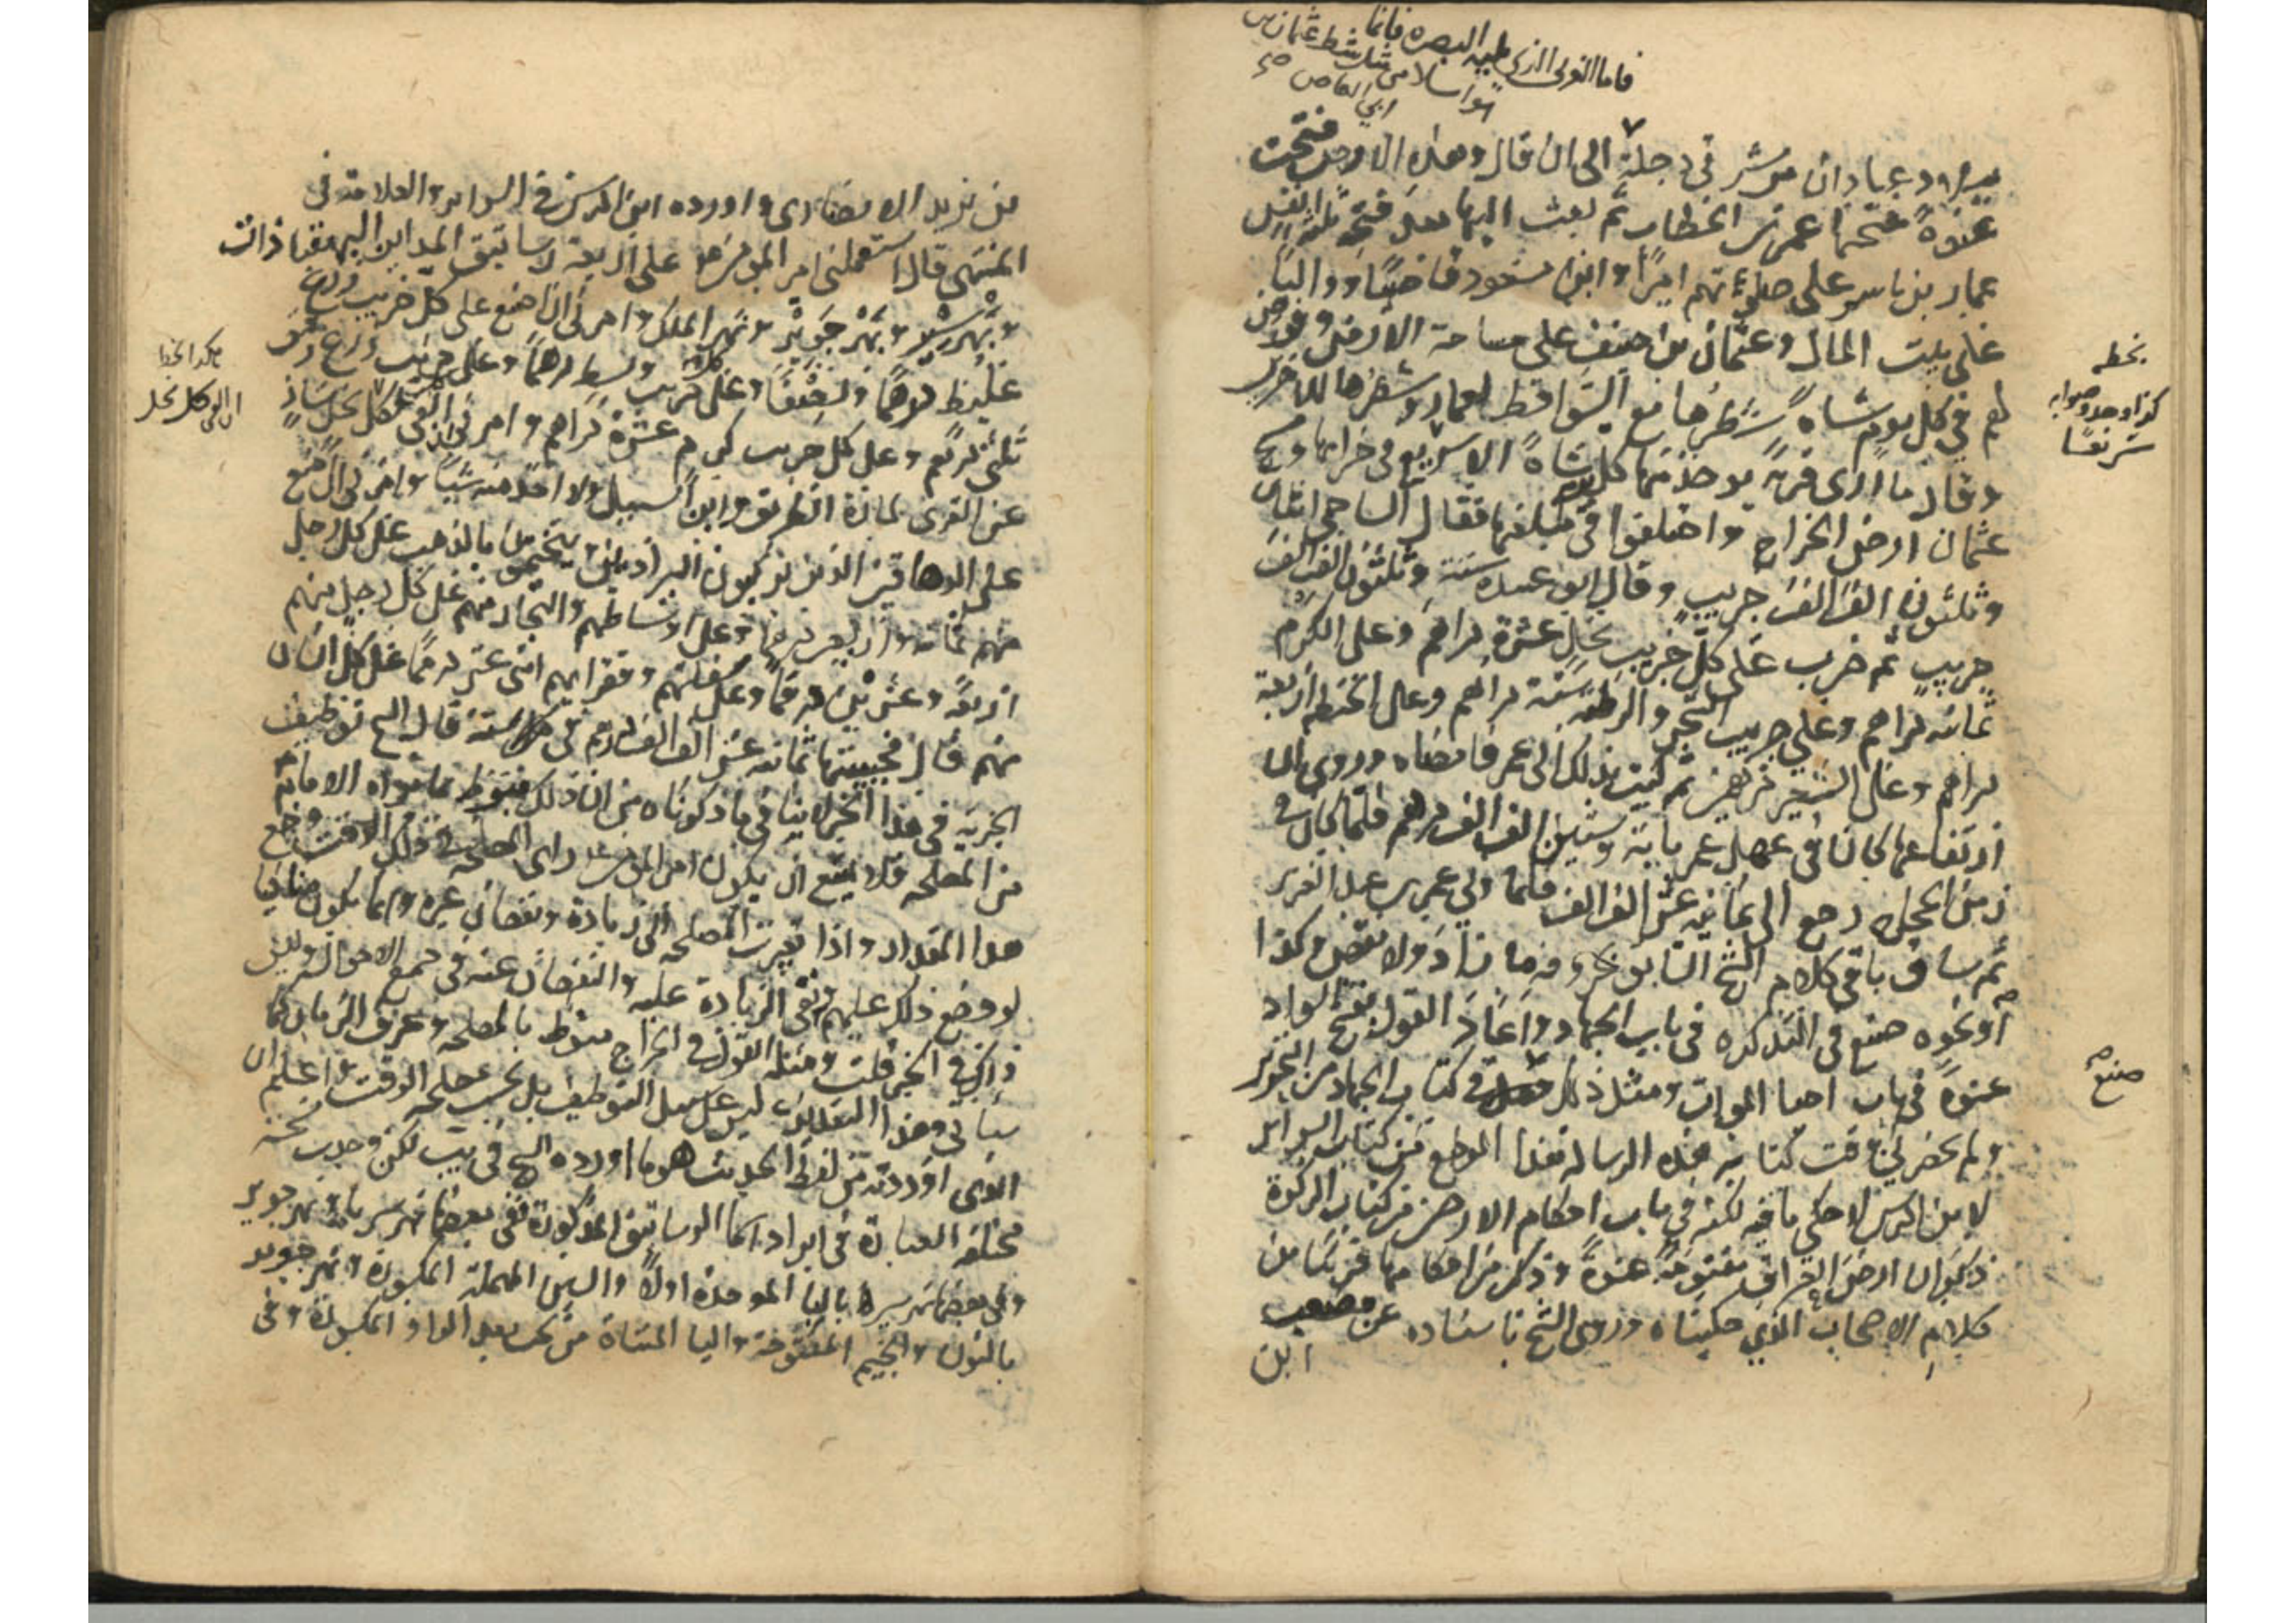 فاما الغربى الذى يليه البصره فانما
هو اسلامى مثل شط عثمان بن
ابى العاص
ببلاد عبادان من شرقى دجلة الى ان قال وهذه الارض فتحت
عنوة فتحها عمر بن الخطاب ثم بعث اليها بعد فتحه ثلثة انفس
عمار بن ياسر على صلوتهم اميرا وابن مسعود قاضيا وواليا
على بيت المال وعثمان بن حنيف على مساحة الارض وفرض
لهم فى كل يوم شاة شطرها مع السواقط لعمار وشطرها للاخرين
وقال ما ارى قرية يوخذ منها كل يوم شاة الا سريع فى خرابها ومسح
عثمان ارض الخراج واختلفوا فى مبلغها فقال الساجى اثنان
وثلثون الف الف جريب وقال ابو عبيدة ستة وثلثون الف الف
جريب ثم ضرب على كل جريب نخل عشرة دراهم وعلى الكرم
ثمانية دراهم وعلى جريب الشجر والرطبة ستة دراهم وعلى الحنطة اربعة
دراهم وعلى الشعير درهمين ثم كتب بذلك الى عمر فامضاه وروى ان
ارتفاعها كان فى عهد عمر مائة وستين الف الف درهم فلما كان فى
زمن الحجاج رجع الى ثمانية عشر الف الف فلما ولى عمر بن عبد العزيز
ثم ساق باقى كلام الشيخ السابق بحروفه ما زاد ولا نقص وكذا
او نحوه صنع فى التذكرة فى باب الجهاد واعاد القول بفتح السواد
عنوة فى باب احيا الموات ومثل ذلك فى كتاب الجهاد من التحرير
ولم يحضرنى وقت كتابه هذه الرسالة هذا الموضع من كتاب السرائر
لابن ادريس لاحكى ما فيه لكنه فى باب احكام الارضين من كتاب الزكوة
ذكر ان ارض العراق مفتوحة عنوة وذكر من احكامها قريبا من
كلام الاصحاب الذى حكيناه وروى الشيخ باسناده عن مصعب
ابن
بخطه
كذا وجد وصوابه
سريعا
صنع
بن يزيد الانصارى واورده ابن ادريس فى السرائر والعلامة فى
المنتهى قال استعملنى امير المومنين على اربعة رساتيق المداين البهقياذات
ونهر شير ونهر جوير ونهر الملك وامرنى ان اضع على كل جريب زرع
غليظ درهما ونصفا وعلى كل جريب وسط درهما وعلى جريب زرع رقيق
ثلثى درهم وعلى كل جريب كرم عشرة دراهم وامرنى ان القى كل نخل شاذ
عن القرى لمارة الطريق وابن السبيل ولا اخذ منه شيئا وامرنى ان اضع
على الدهاقين الذين يركبون البراذين ويتختمون بالذهب على كل رجل
منهم ثمانية واربعين درهما وعلى اوساطهم والتجار منهم على كل رجل منهم
اربعة وعشرين درهما وعلى سفلتهم وفقرائهم اثنى عشر درهما على كل انسان
منهم قال فجبيتها ثمانية عشر الف الف درهم فى سنة قال الشيخ توظيف
الجزية فى هذا الخبر لا ينافى ما ذكرناه من ان ذلك منوط بما يراه الامام
من المصلحة فلا يمتنع ان يكون امير المومنين راى المصلحة فى ذلك الوقت وضع
هذا المقدار واذا تغيرت المصلحة الى زيادة ونقصان غيره وانما يكون منافيا
لو وضع ذلك عليهم ونفى الزيادة عليه والنقصان عنه فى جميع الاحوال وليس
ذلك فى الخبر قلت ومثله القول فى الخراج منوط بالمصلحة وعرف الزمان كما
سياتى وهذا التقدير ليس على سبيل التوظيف بل بحسب مصلحة الوقت واعلم ان
الذى اوردته من لفظ الحديث هو ما اورده الشيخ فى يب لكن وجدت نسخه
مختلفة العبارة فى ايراد اسما الرساتيق المذكورة ففى بعضها نهر سير ونهر جوير
وفى بعضها بهر سير بالبا الموحدة اولا والسين المهملة المكسورة ونهر جوير
بالنون والجيم المفتوحة واليا المثناة من تحت بعد الواو المكسورة وفى
هكذا بخط
ان القى كل نخل